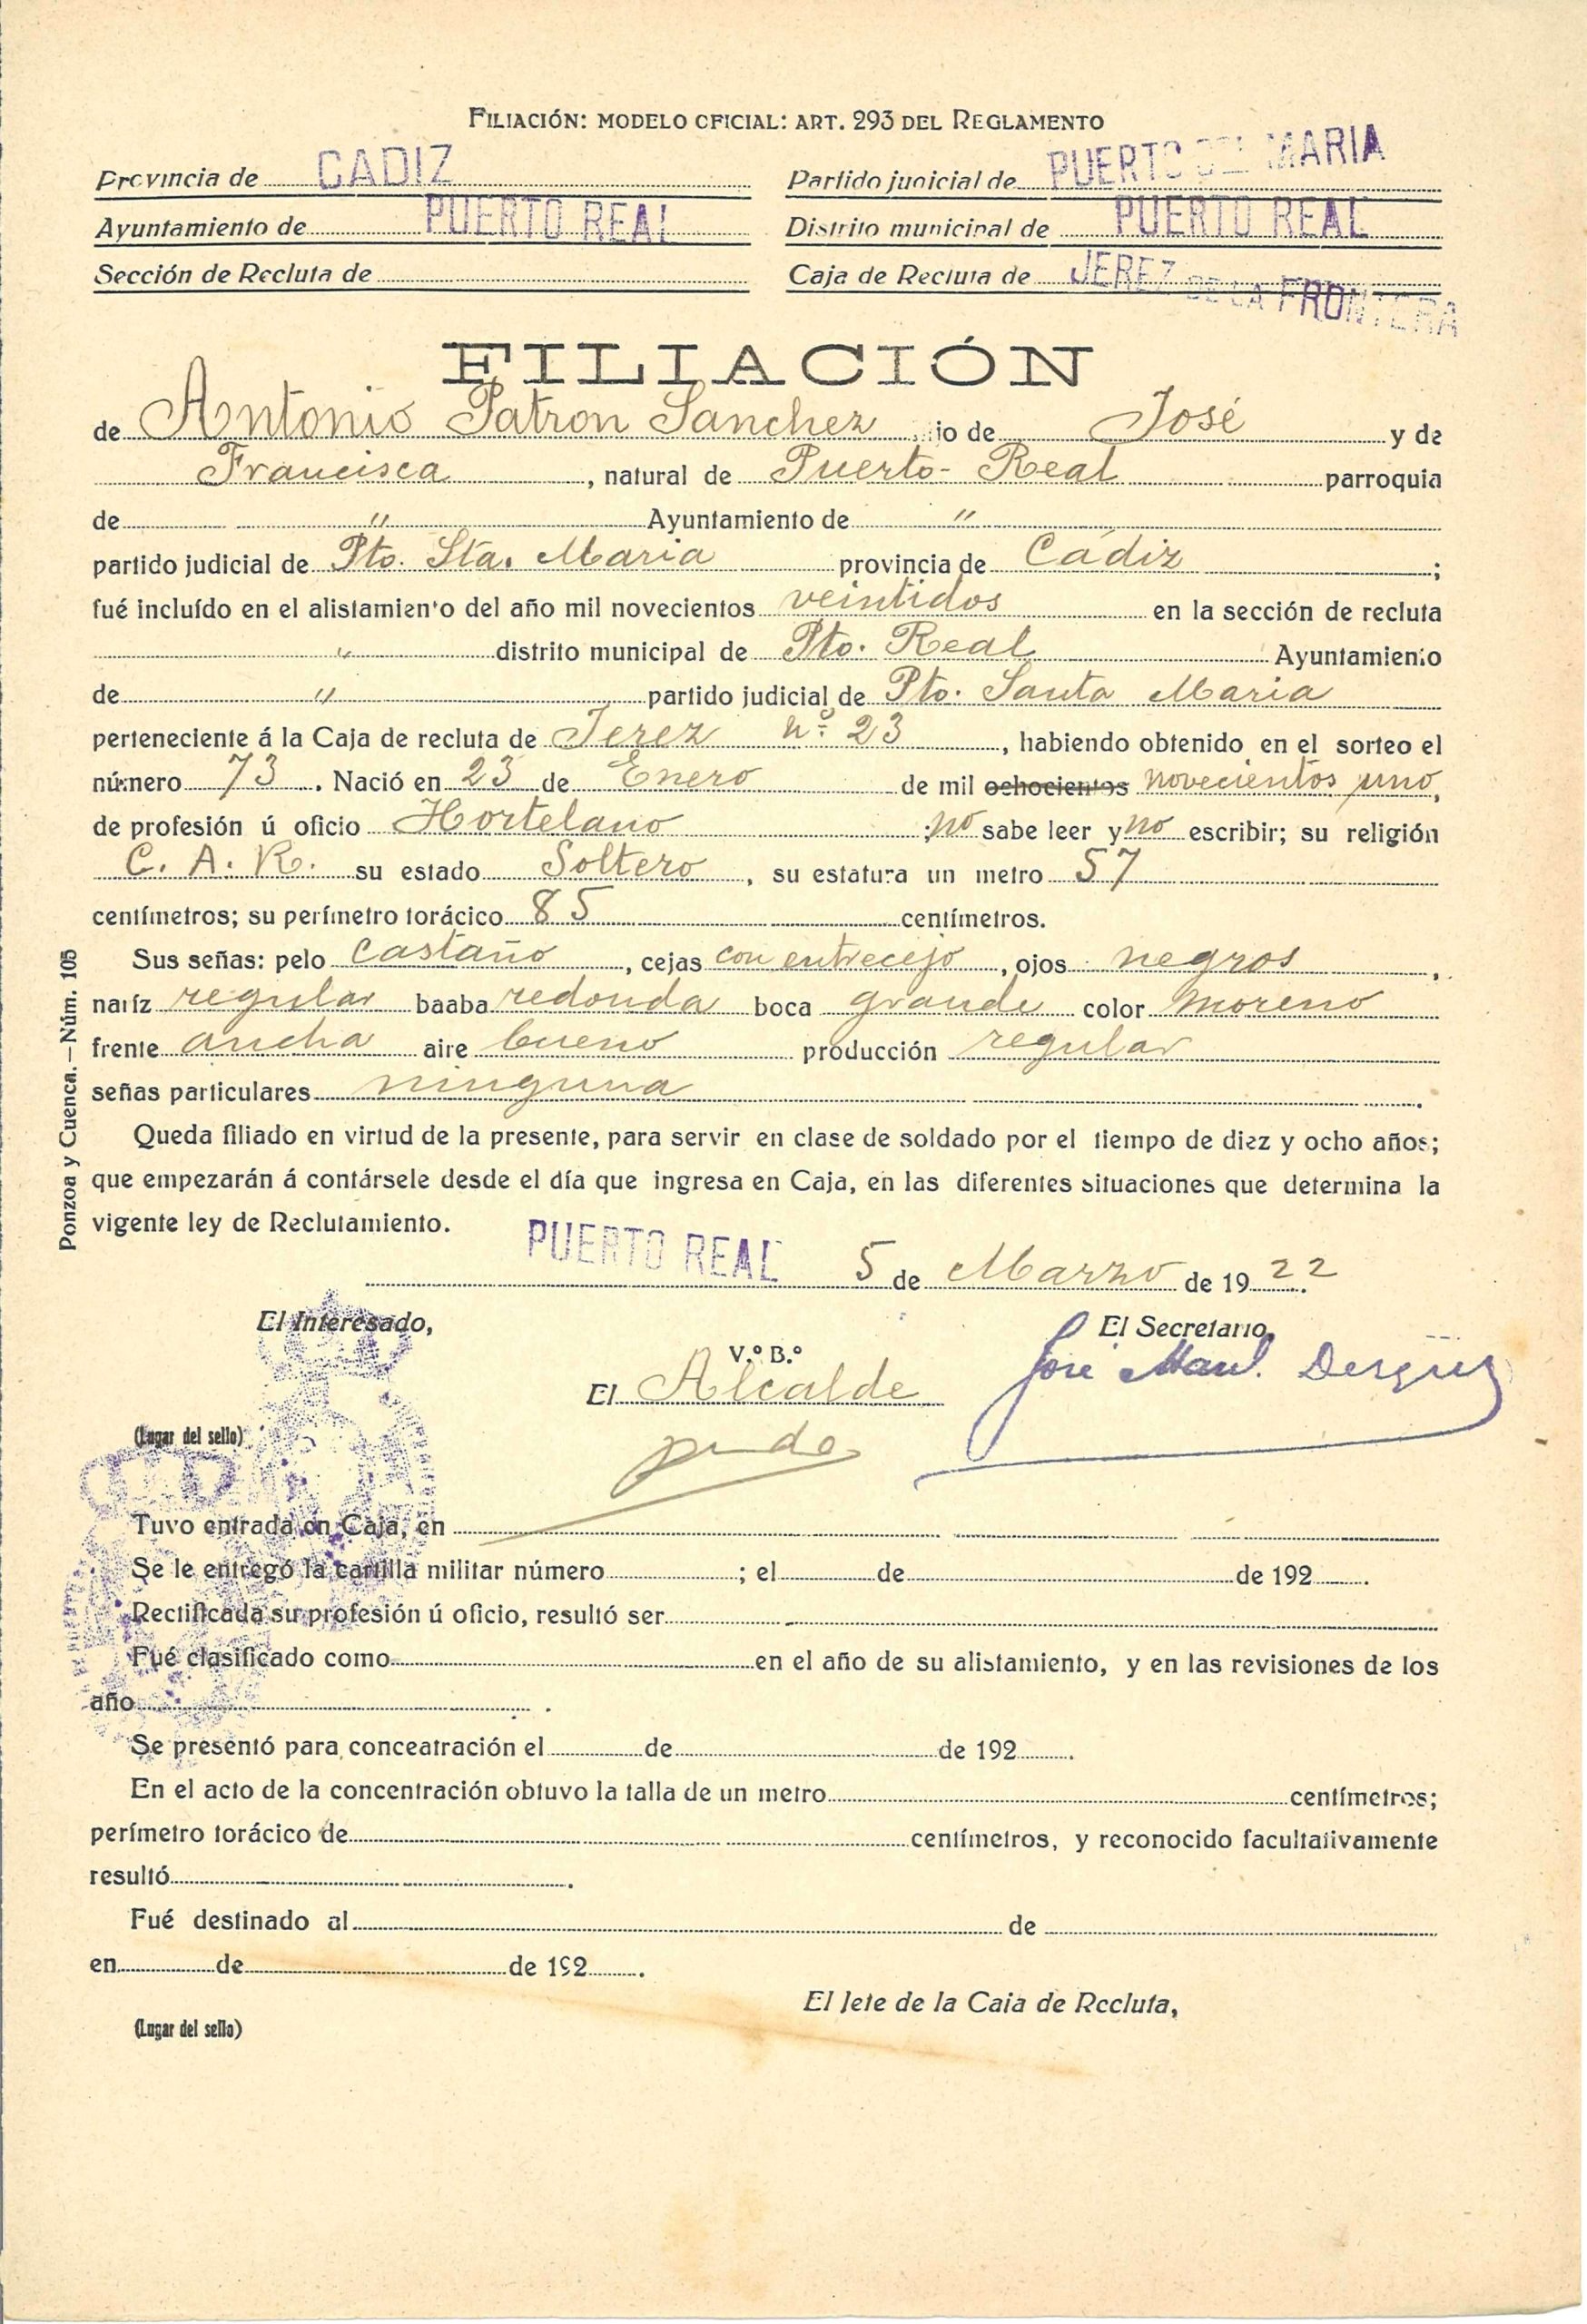 FILIACIÓN: MODELO OFICIAL: ART. 293 DEL REGLAMENTO
Provincia de CADIZ Partido judicial de PUERTO MARIA
Ayuntamiento de PUERTO REAL Distrito municipal de PUERTO REAL
Sección de Recluta de Caja de Recluta de JEREZ DE LA FRONTERA
FILIACIÓN
de Antonio Patron Sanchez io de José y de
Francisca, natural de Puerto-Real parroquia
de " Ayuntamiento de "
partido judicial de Pto. Sta. Maria provincia de Cádiz;
fué incluído en el alistamiento del año mil novecientos veintidos en la sección de recluta
" distrito municipal de Pto. Real Ayuntamiento
de " partido judicial de Pto. Santa Maria
perteneciente á la Caja de recluta de Jerez nº 23, habiendo obtenido en el sorteo el
número 73. Nació en 23 de Enero de mil ochocientos novecientos uno,
de profesión ú oficio Hortelano; no sabe leer y no escribir; su religión
C. A. R. su estado Soltero, su estatura un metro 57
centímetros; su perímetro torácico 85 centímetros.
Sus señas: pelo castaño, cejas con entrecejo, ojos negros,
naríz regular baaba redonda boca grande color moreno
frente ancha aire bueno producción regular
señas particulares ninguna.
Queda filiado en virtud de la presente, para servir en clase de soldado por el tiempo de diez y ocho años;
que empezarán á contársele desde el día que ingresa en Caja, en las diferentes situaciones que determina la
vigente ley de Reclutamiento.
PUERTO REAL 5 de Marzo de 1922.
El Interesado,
El Secretario,
V.º B.º
José Manl.
El Alcalde
(Lugar del sello)
Tuvo entrada en Caja, en
Se le entregó la cartilla militar número ; el de de 192 .
Rectificada su profesión ú oficio, resultó ser
Fué clasificado como en el año de su alistamiento, y en las revisiones de los
año .
Se presentó para conceatración el de de 192 .
En el acto de la concentración obtuvo la talla de un metro centímetros;
perímetro torácico de centímetros, y reconocido facultativamente
resultó .
Fué destinado al de
en de de 192 .
El Jefe de la Caja de Recluta,
(Lugar del sello)
Ponzoa y Cuenca.—Núm. 105